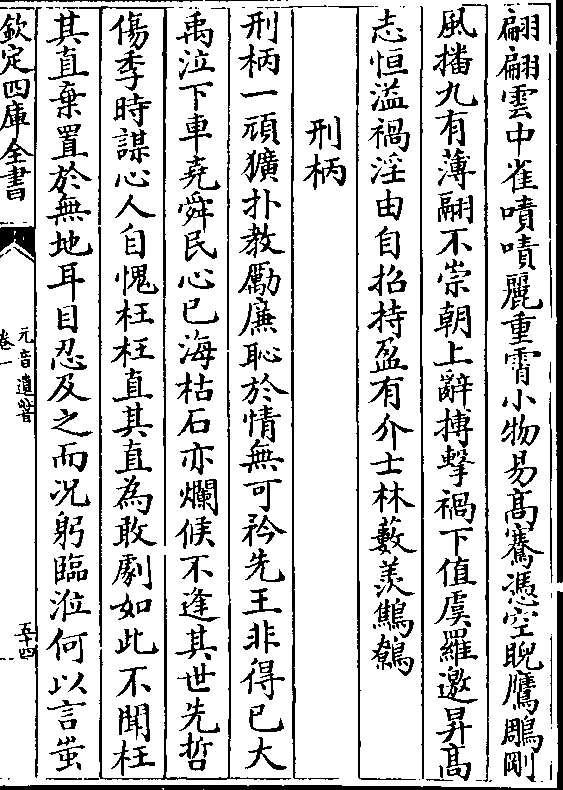 翩翩雲中雀嘖嘖麗重霄小物易高騫憑空睨鷹鵰剛
風播九有薄翮不崇朝上辭搏擊禍下值虞羅邀昇高
志恒溢禍淫由自招持盈有介士林藪羨鷦鷯
刑柄
刑柄一頑獷扑教勵廉恥於情無可矜先王非得已大
禹泣下車堯舜民心已海枯石亦爛候不逢其世先哲
傷季時謀心人自愧枉枉直其直為敢劇如此不聞枉
其直棄置於無地耳目忍及之而况躬臨涖何以言蚩
欽定四庫全書
元音遺響
卷一
五十四